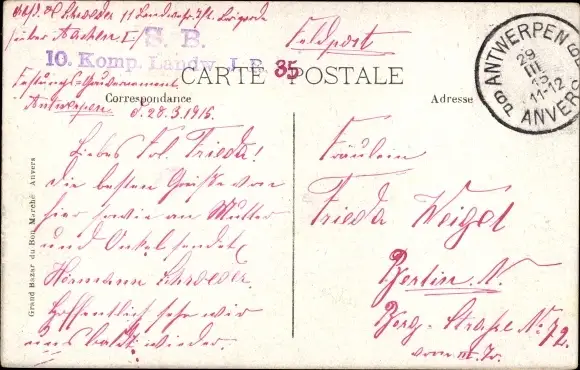 Schroeder 11 Landw. Brigade
über Aachen I
S. B.
10. Komp. Landw. I. R. 35
Feldpost
Festungs-Gouvernement
Antwerpen
CARTE POSTALE
Correspondance
Adresse
ANTWERPEN
29
III
15
11-12
ANVERS
d. 28.3.1915.
Liebes Frl. Frieda!
Die besten Grüße von
hier sowie an Mutter
und Onkel sendet
Hermann Schroeder.
Hoffentlich sehn wir
uns bald wieder.
Fräulein
Frieda Weigel
Berlin. N.
Berg-Straße No 72.
vorn III. Tr.
Grand Bazar du Bon Marché Anvers